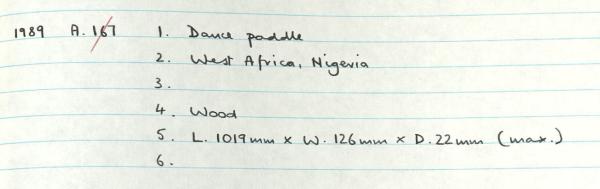 1989 A.167 1. Dance paddle
2. West Africa, Nigeria
3.
4. Wood
5. L. 1019mm x W. 126mm x D. 22mm (max.)
6.